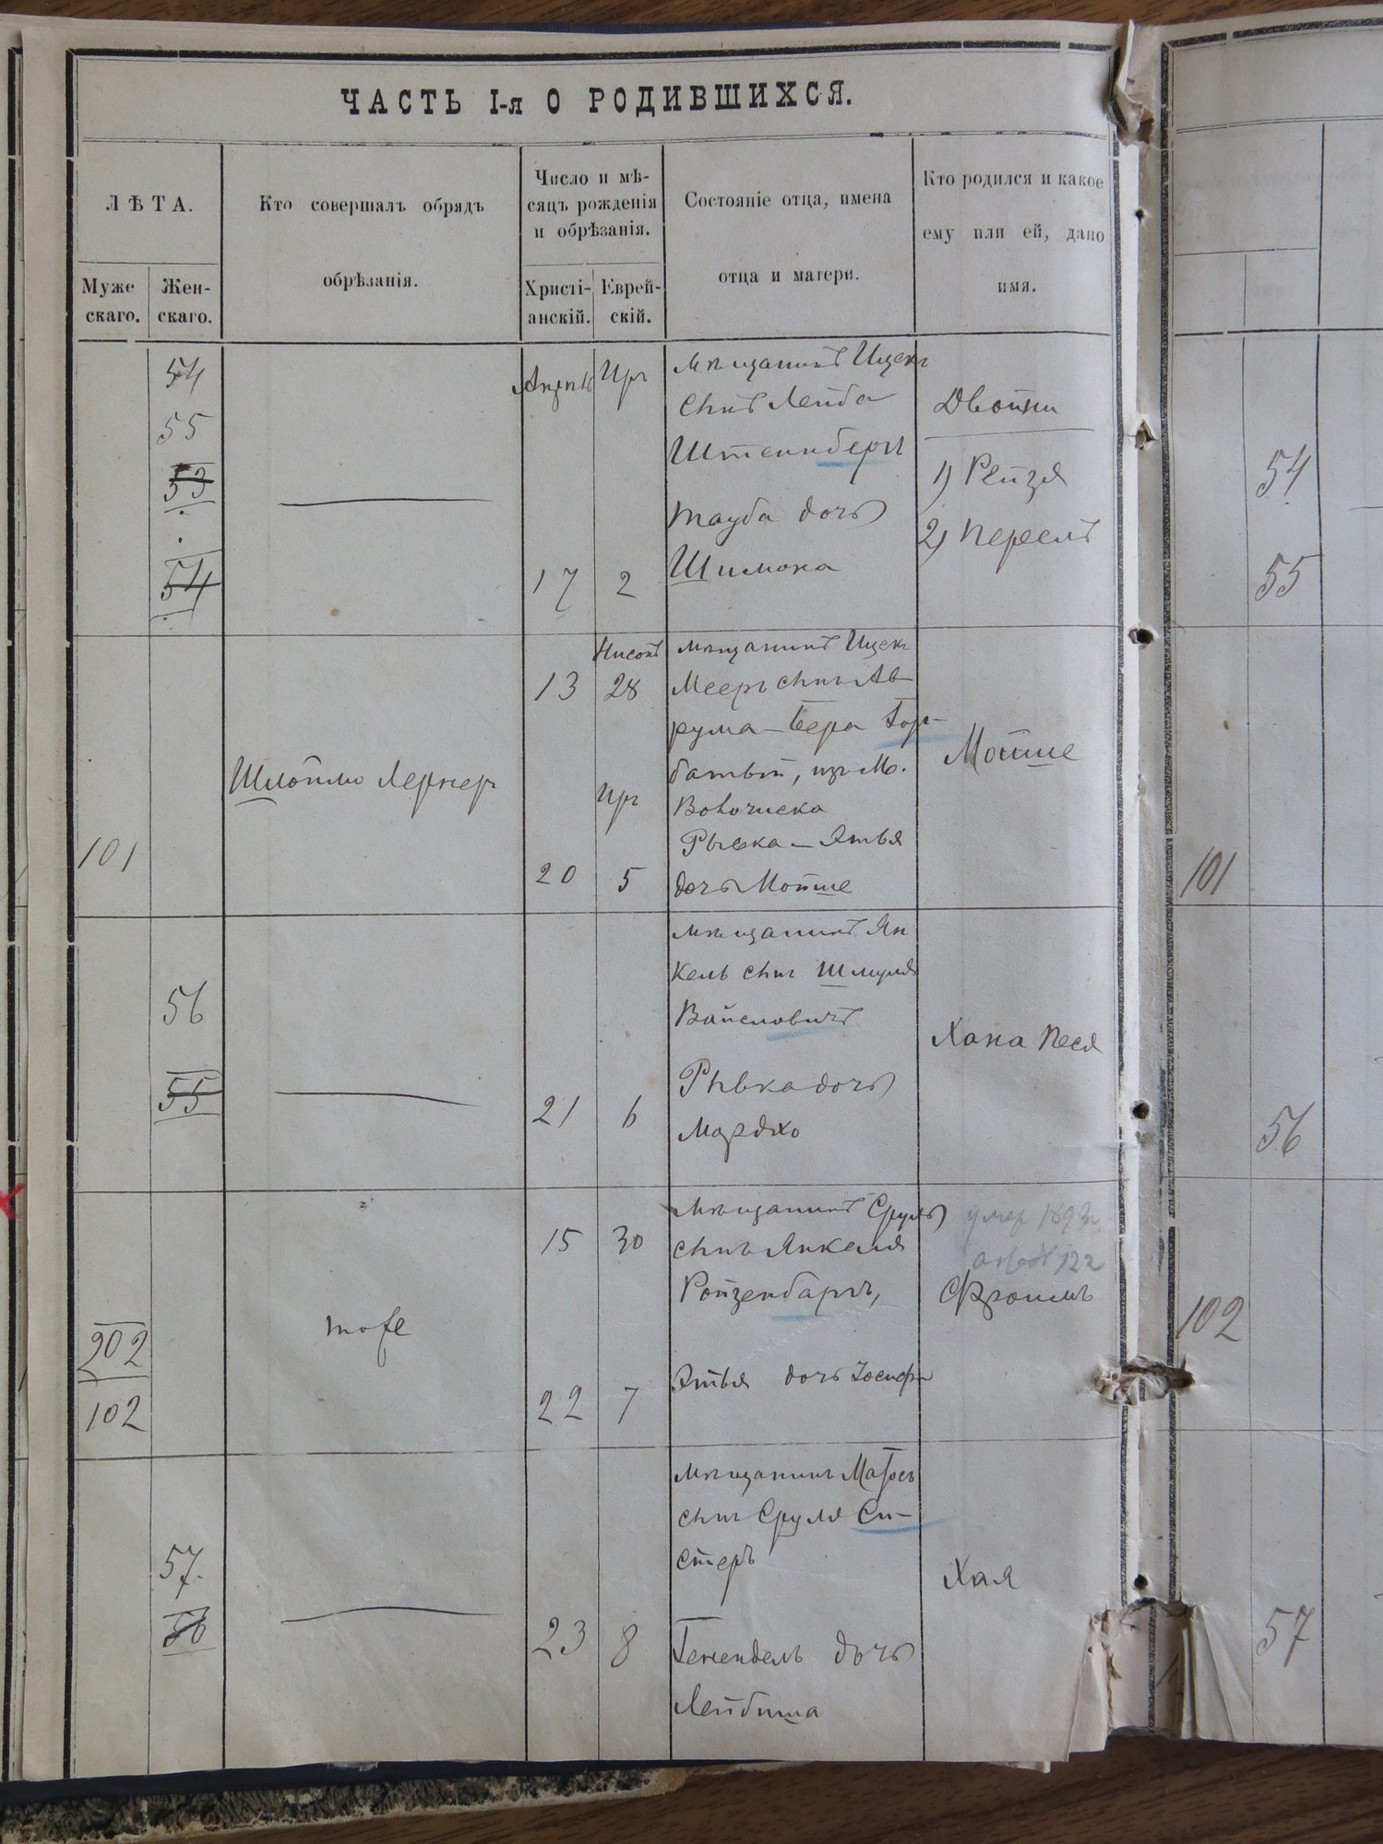 ЧАСТЬ I-я О РОДИВШИХСЯ.
ЛѢТА.
Муже
скаго.
Жен-
скаго.
Кто совершалъ обрядъ
обрѣзанія.
Число и мѣ-
сяцъ рожденія
и обрѣзанія.
Христі-
анскій.
Еврей-
скій.
Состояніе отца, имена
отца и матери.
Кто родился и какое
ему или ей, дано
имя.
54
55
53
54
Апрѣль
Иръ
17
2
мѣщанинъ Ицекъ
сынъ Лейба
Штейнбергъ
Тауба дочь
Шимона
Двойни
1) Рейзя
2) Перель
54
55
101
Шлоймо Лернеръ
13
Нисонъ
28
Иръ
20
5
мѣщанинъ Ицекъ
Мееръ сынъ Ав-
рума-Бера Гор-
батый, изъ М.
Волочиска
Рывка-Этья
дочь Мойше
Мойше
101
56
55
21
6
мѣщанинъ Ян
кель сынъ Шмуля
Вайсловичъ
Рывка дочь
Мардхо
Хана Песя
56
202
102
тоже
15
30
22
7
мѣщанинъ Сруль
сынъ Янкеля
Ройзенбаргъ,
Этья дочь Іосифа
умер 1893г.
122
Фроимъ
102
57.
56
23
8
мѣщанинъ Матосъ
сынъ Сруля Си-
стеръ
Генендель дочь
Лейбиша
Хая
57